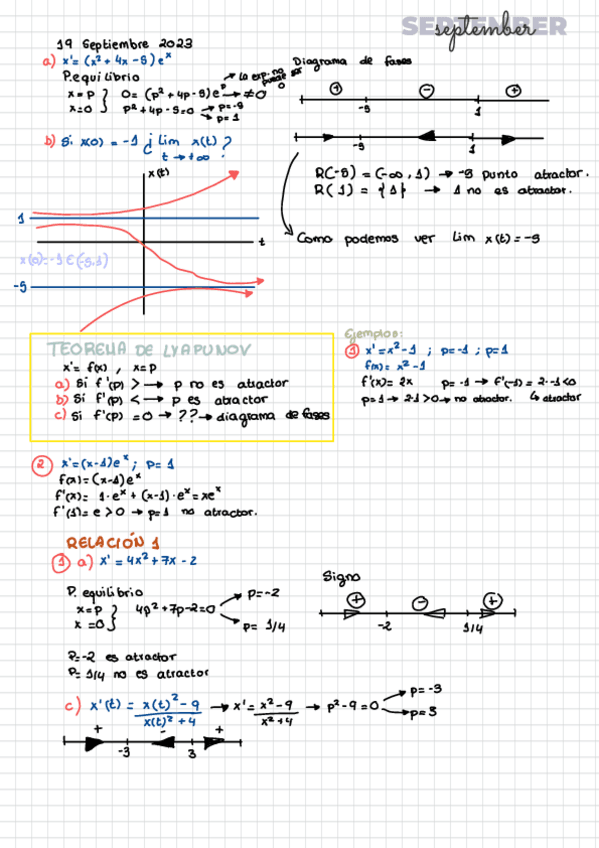 SEPTEMBER
september
19 Septiembre 2023
a) x'= (x² + 4x - 5) eˣ
P. equilibrio
x = p } 0 = (p² + 4p - 5) eᵖ → ≠0 → la exp. no puede ser 0
ẋ=0 } p² + 4p - 5 = 0 → p = -5
→ p = 1
Diagrama de fases
+ - +
-5 1
-5 1
R(-5) = (-∞, 1) → -5 punto atractor.
R(1) = {1} → 1 no es atractor.
Como podemos ver lim x(t) = -5
b) Si x(0) = -1 ¿ lim x(t) ?
t → +∞
x(t)
1
t
x(0)=-1 ∈ (-5,1)
-5
TEOREMA DE LYAPUNOV
x'= f(x) , x=p
a) Si f'(p) > → p no es atractor
b) Si f'(p) < → p es atractor
c) Si f'(p) = 0 → ?? → diagrama de fases
Ejemplos:
1 x' = x² - 1 ; p = -1 ; p = 1
f(x) = x² - 1
f'(x) = 2x p = -1 → f'(-1) = 2·-1 < 0
p = 1 → 2·1 > 0 → no atractor. ↳ atractor
2 x' = (x-1) eˣ ; p = 1
f(x) = (x-1) eˣ
f'(x) = 1·eˣ + (x-1)·eˣ = xeˣ
f'(1) = e > 0 → p = 1 no atractor.
RELACIÓN 1
1 a) x' = 4x² + 7x - 2
P. equilibrio
x = p } 4p² + 7p - 2 = 0 → p = -2
ẋ = 0 } → p = 1/4
Signo
+ - +
-2 1/4
p = -2 es atractor
p = 1/4 no es atractor
c) x'(t) = x(t)² - 9 / x(t)² + 4 → x' = x² - 9 / x² + 4 → p² - 9 = 0 → p = -3
→ p = 3
+ - +
-3 3